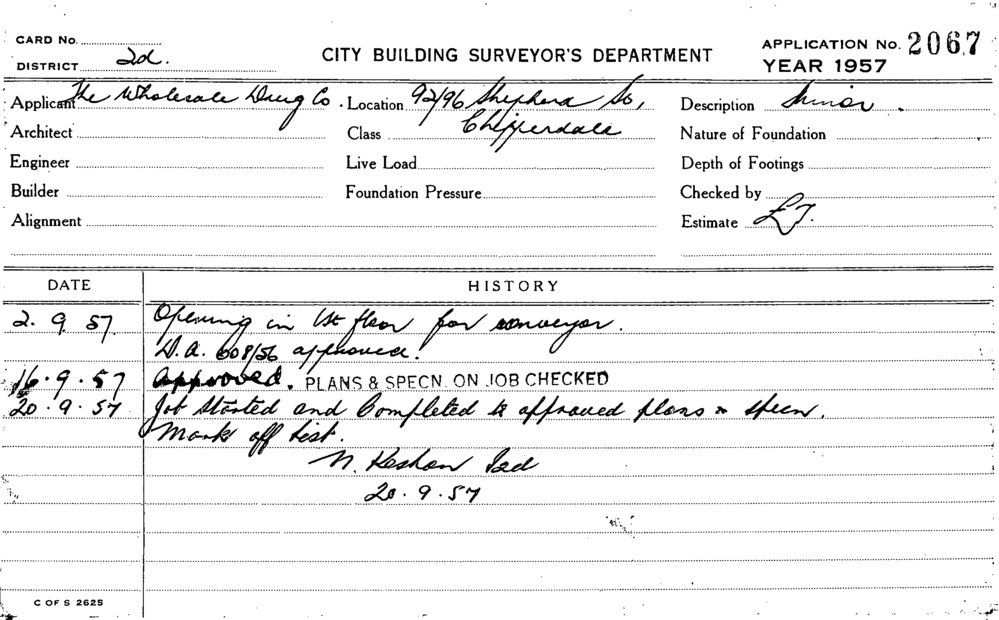 CARD No.
DISTRICT 2d.
CITY BUILDING SURVEYOR'S DEPARTMENT
APPLICATION No. 2067
YEAR 1957
Applicant The Wholesale Drug Co. Location 92/96 Shepherd St, Description Minor.
Architect Class Chippendale Nature of Foundation
Engineer Live Load Depth of Footings
Builder Foundation Pressure Checked by
Alignment Estimate
DATE HISTORY
2. 9. 57. Opening in 1st floor for conveyor.
D.A. 608/56 approved.
16.9.57 Approved. PLANS & SPECN. ON JOB CHECKED
20.9.57 Job Started and Completed to approved plans & specn.
Mark off list.
N.
20.9.57
C OF S 2625